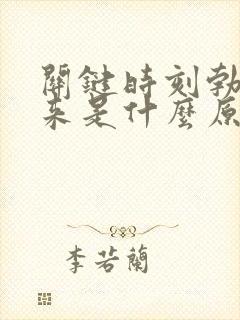 關鍵時刻勃
来是什麼原
李若蘭